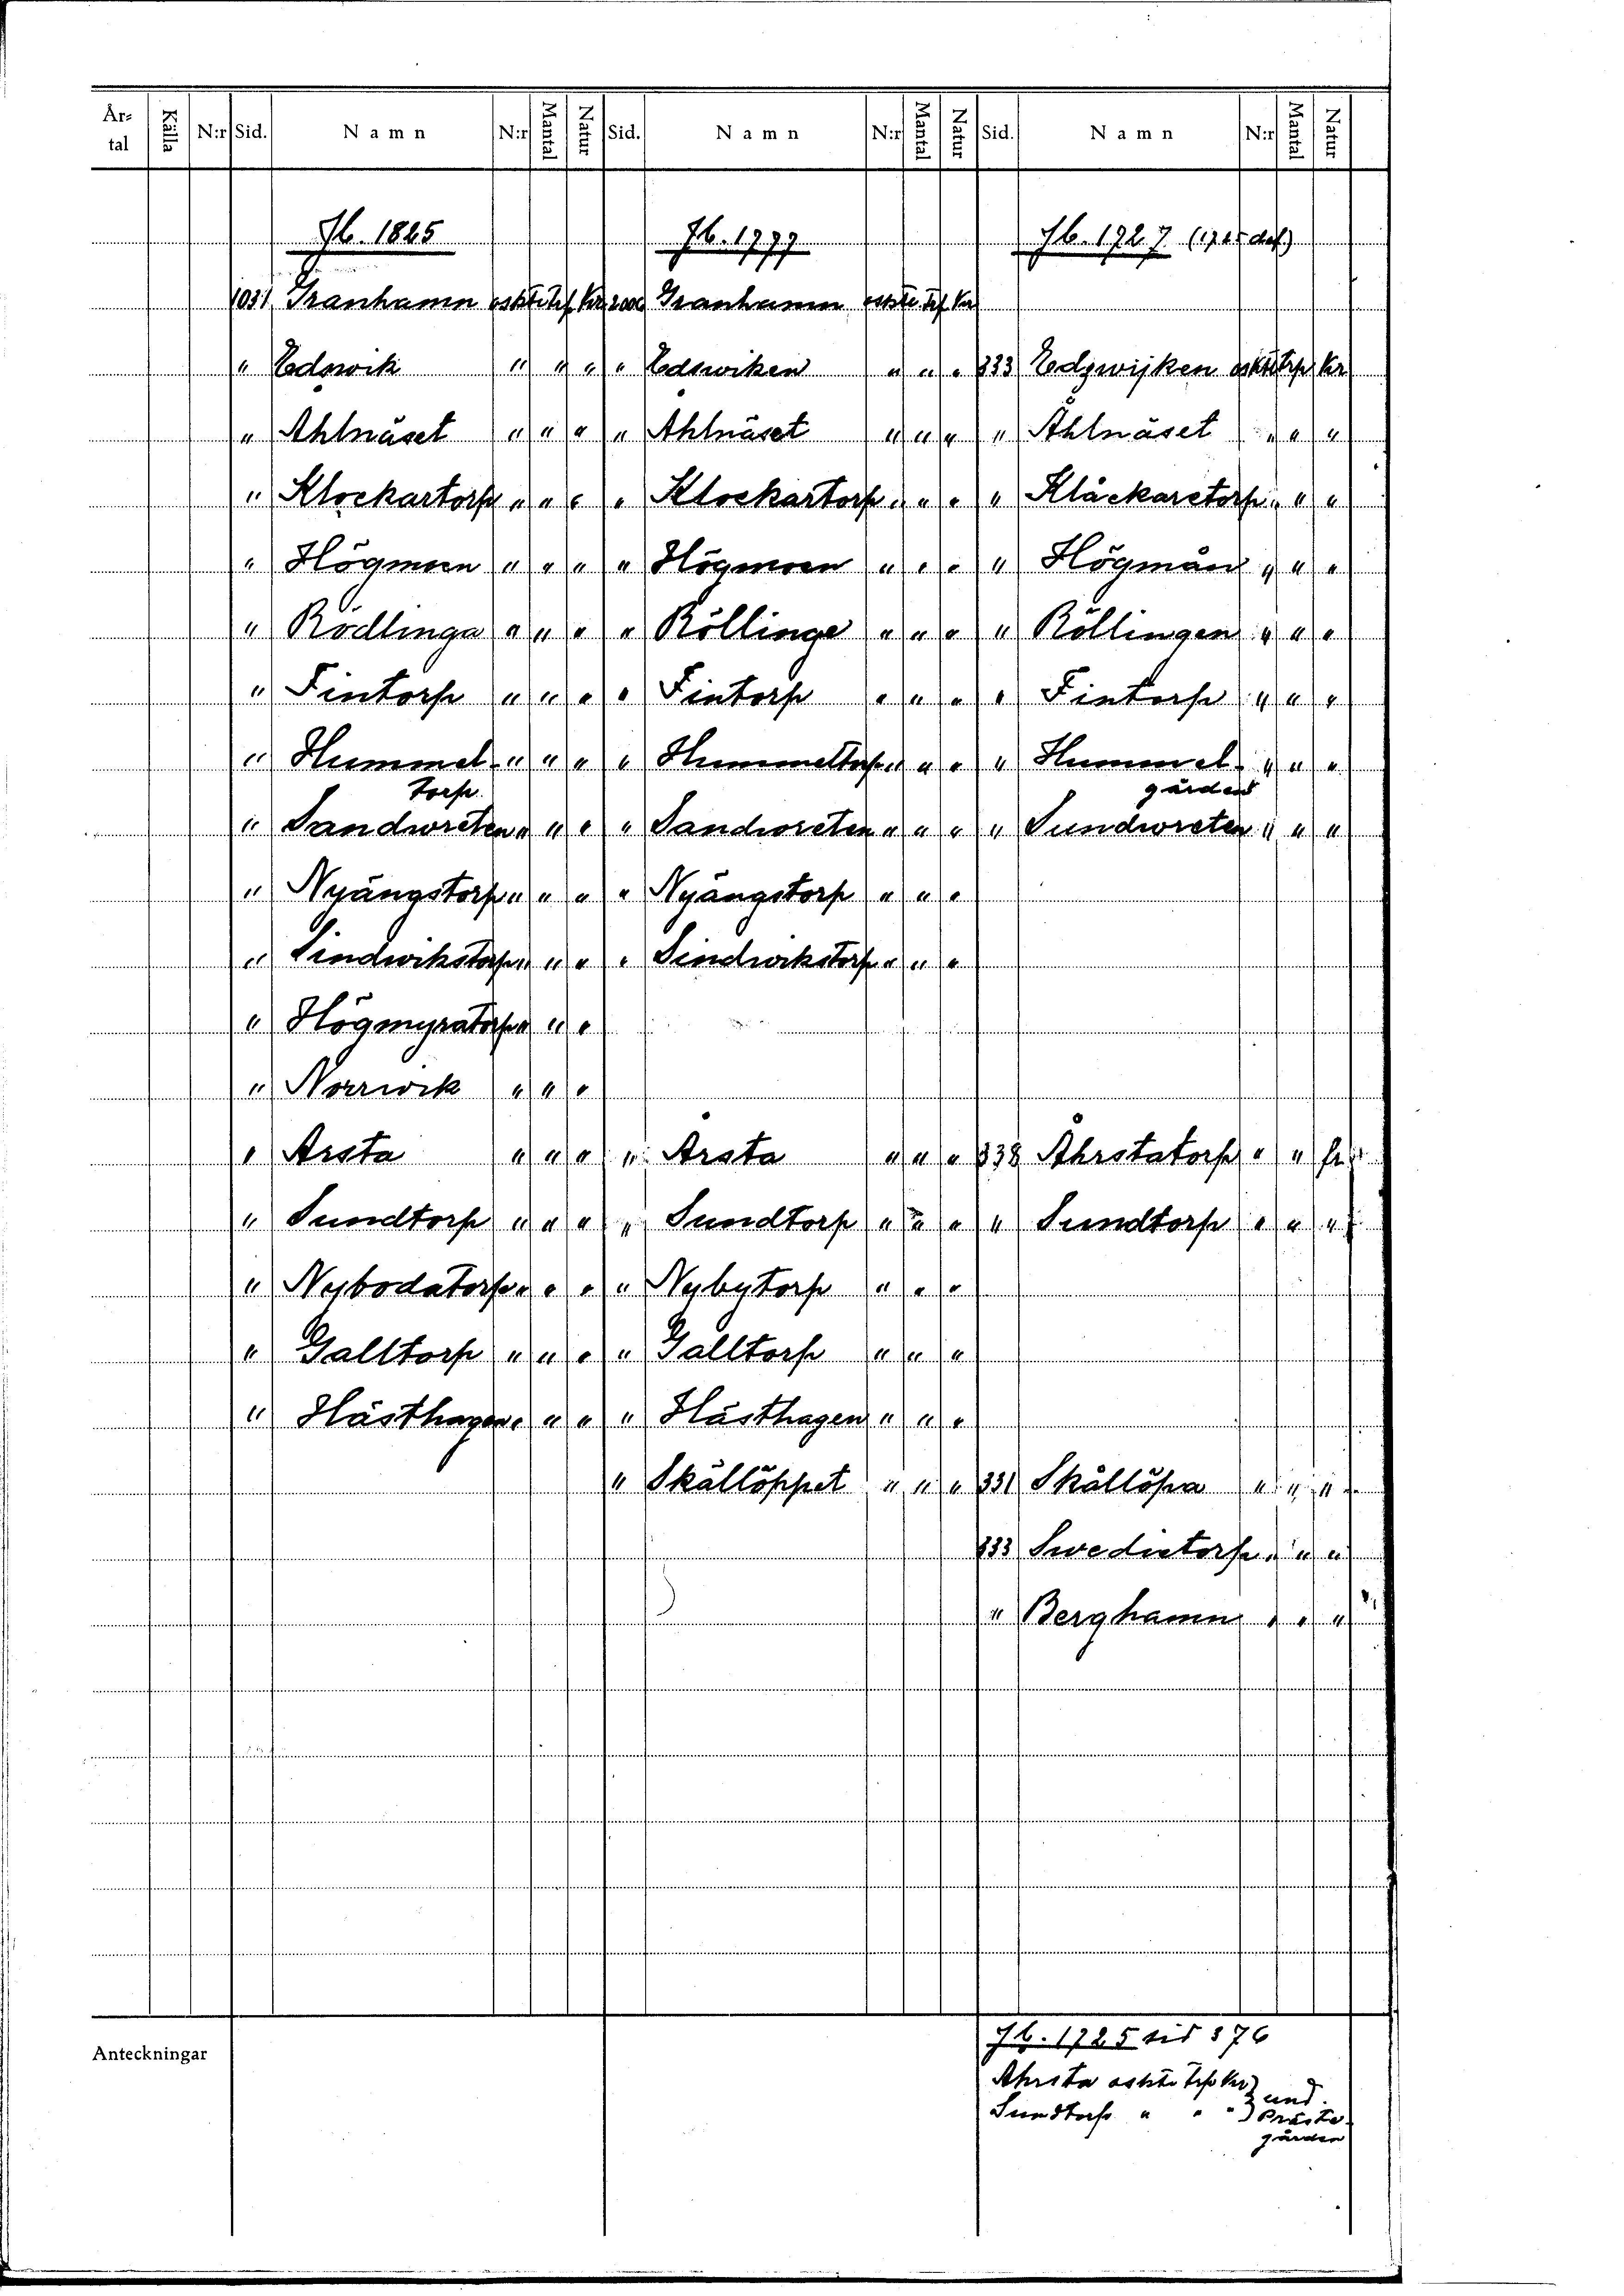 År-tal Källa N:r Sid. Namn N:r Mantal Natur Sid. Namn N:r Mantal Natur Sid. Namn N:r Mantal Natur
Jb. 1825 Jb. 1777 Jb. 1727 (1725 def.)
1031 Granhamn oskte trp Kr 2000 Granhamn oskte trp Kr
" Edswik " " " " Edswiken " " " 333 Edzwijken oskte trp Kr
" Ahlnäset " " " " Ahlnäset " " " " Åhlnäset " " "
" Klockartorp " " " " Klockartorp " " " " Klåckaretorp " " "
" Högmoen " " " " Högmoen " " " " Högmån " " "
" Rödlinga " " " " Röllinge " " " " Röllingen " " "
" Fintorp " " " " Fintorp " " " " Fintorp " " "
" Hummel- " " " " Hummeltorp " " " " Hummel- " " "
torp gården
" Sandwreten " " " " Sandwreten " " " " Sundwreten " " "
" Nyängstorp " " " " Nyängstorp " " "
" Lindwikstorp " " " " Lindwikstorp " " "
" Högmyratorp " " "
" Norrwik " " "
" Arsta " " " " Årsta " " " 338 Åhrstatorp " " fr
" Sundtorp " " " " Sundtorp " " " " Sundtorp " " "
" Nybodatorp " " " " Nybytorp " " "
" Galltorp " " " " Galltorp " " "
" Hästhagen " " " " Hästhagen " " "
" Skällöppet " " " 331 Skållöpa " " "
333 Swedietorp " " "
" Berghamn " " "
Anteckningar
Jb. 1725 sid 376
Ahrsta oskte trp Kr } und.
Sundtorp " " " } Präste-
gården